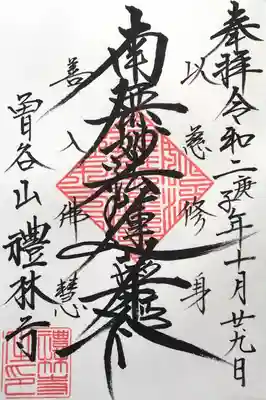 奉拝 令和二庚子年十月廿九日
以慈修身
南無妙法蓮華経
善入佛慧
曽谷山 禮林寺